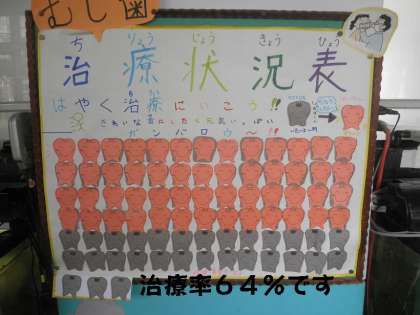 むし歯
ち りょう じょう きょう ひょう
治療状況表
はやく治療にいこう!!
きれいな歯にしたく元気いっぱい
ガンバロウ〜!!
治療率64%です